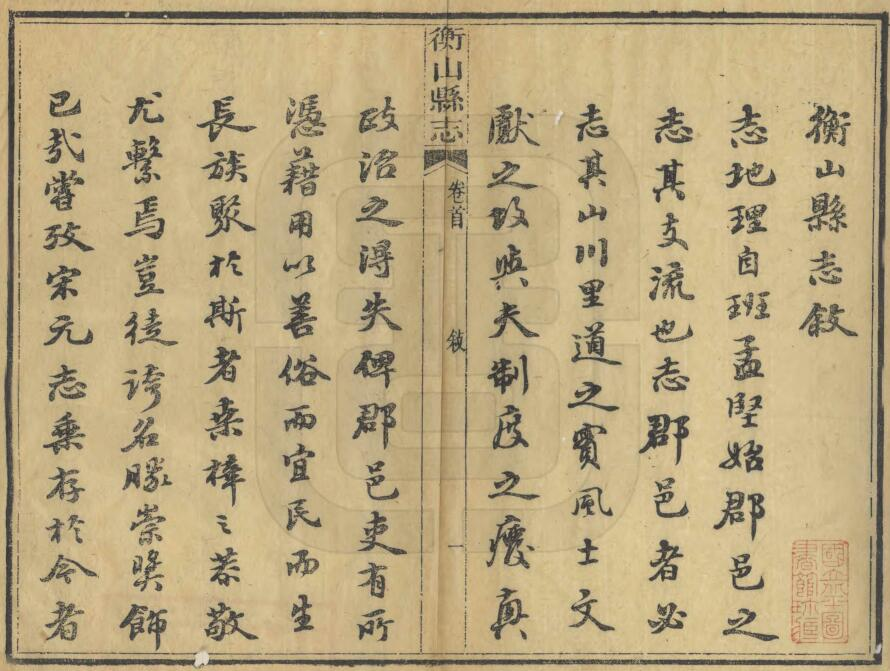 衡山縣志敘
志地理自班孟堅始郡邑之
志其支流也志郡邑者必
志其山川里道之實風土文
獻之攷與夫制度之廢興
衡山縣志
卷首
敍
一
政治之得失俾郡邑吏有所
憑藉用以善俗而宜民而生
長族聚於斯者桑梓之恭敬
尤繫焉豈徒誇名勝崇奬飾
已哉嘗攷宋元志乘存於今者
國立北平圖
書館珍藏